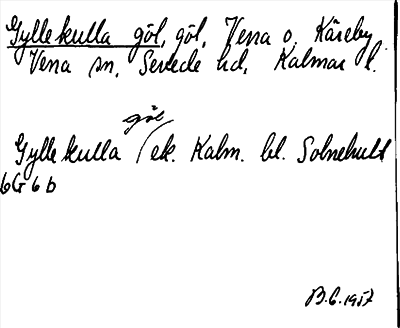 Gyllekulla göl, göl, Vena o. Kåreby
Vena sn, Sevede hd, Kalmar l.
göl
Gyllekulla / ek. Kalm. bl. Solnehult
6G 6 b
B.G. 1957